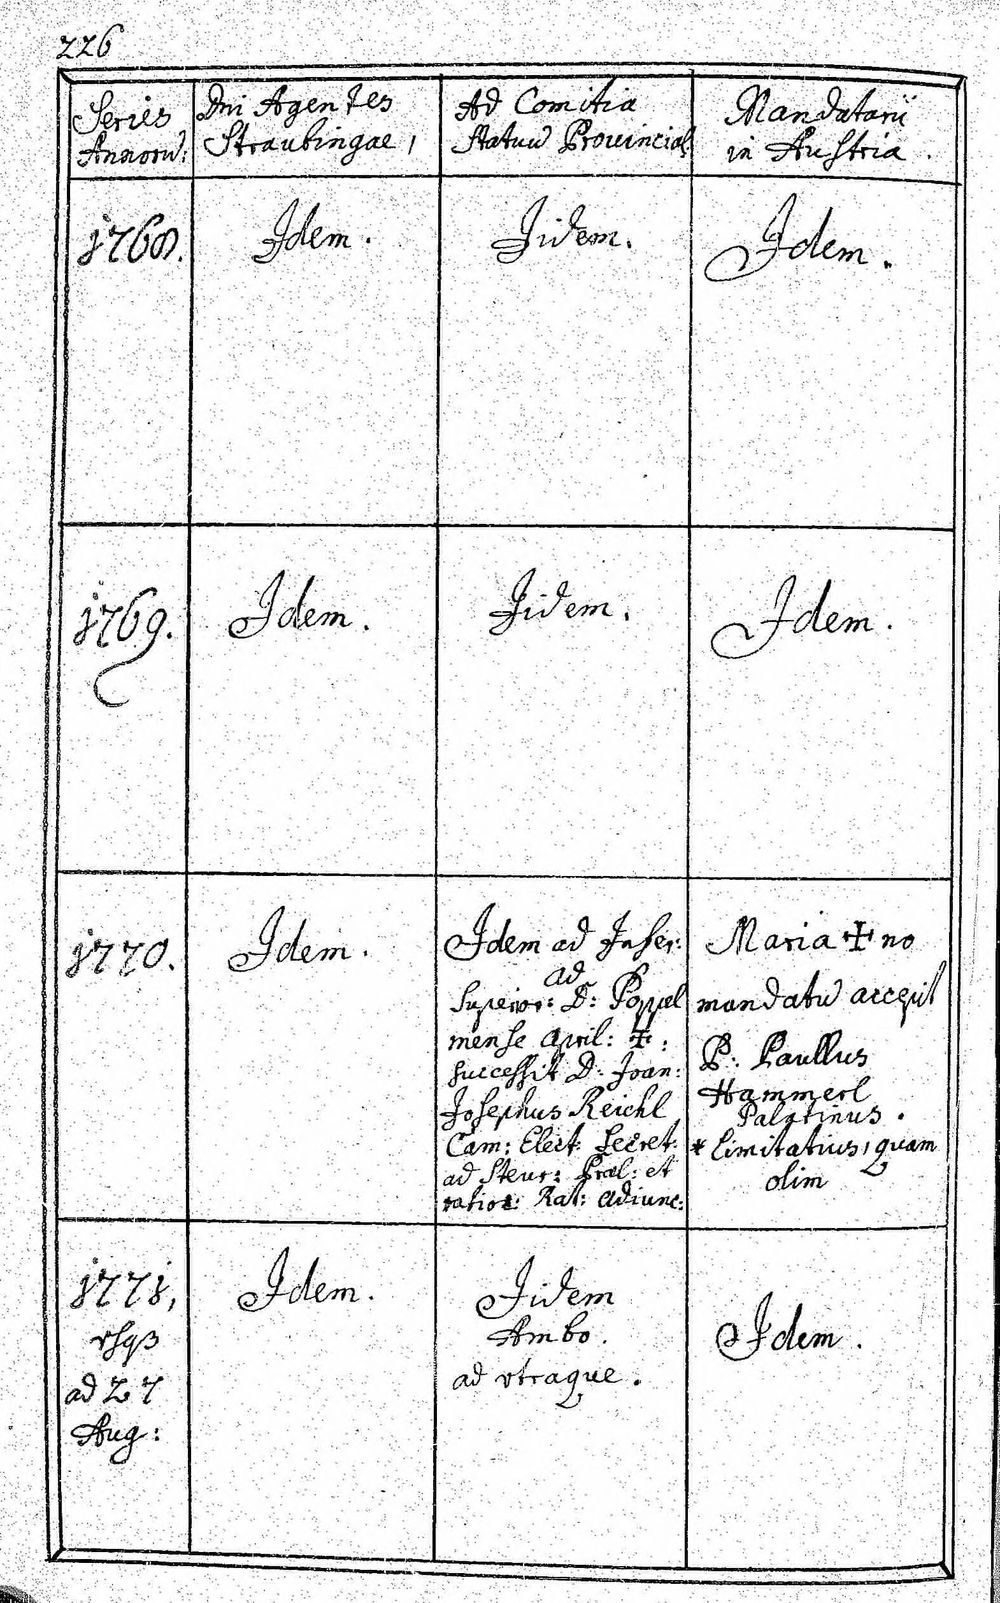 226
Series
Annorū:
Dni Agentes
Straubingae,
Ad Comitia
Statuū Provincial:
Mandatarii
in Austria.
1768.
Idem.
Iidem.
Idem.
1769.
Idem.
Iidem.
Idem.
1770.
Idem.
Idem ad Infer:
ad
Superior: D: Poppel
mense April: ✝:
successit D: Joan:
Josephus Reichl
Cam: Elect: Secret:
ad Steur: Præl: et
Rat: Adiunc:
Maria ✝ no
mandatū accepit
P: Paullus
Hammerl
Palatinus.
* limitatius, quam
olim
1771,
vsqꝫ
ad 27
Aug:
Idem.
Iidem
Ambo.
ad vtraque.
Idem.